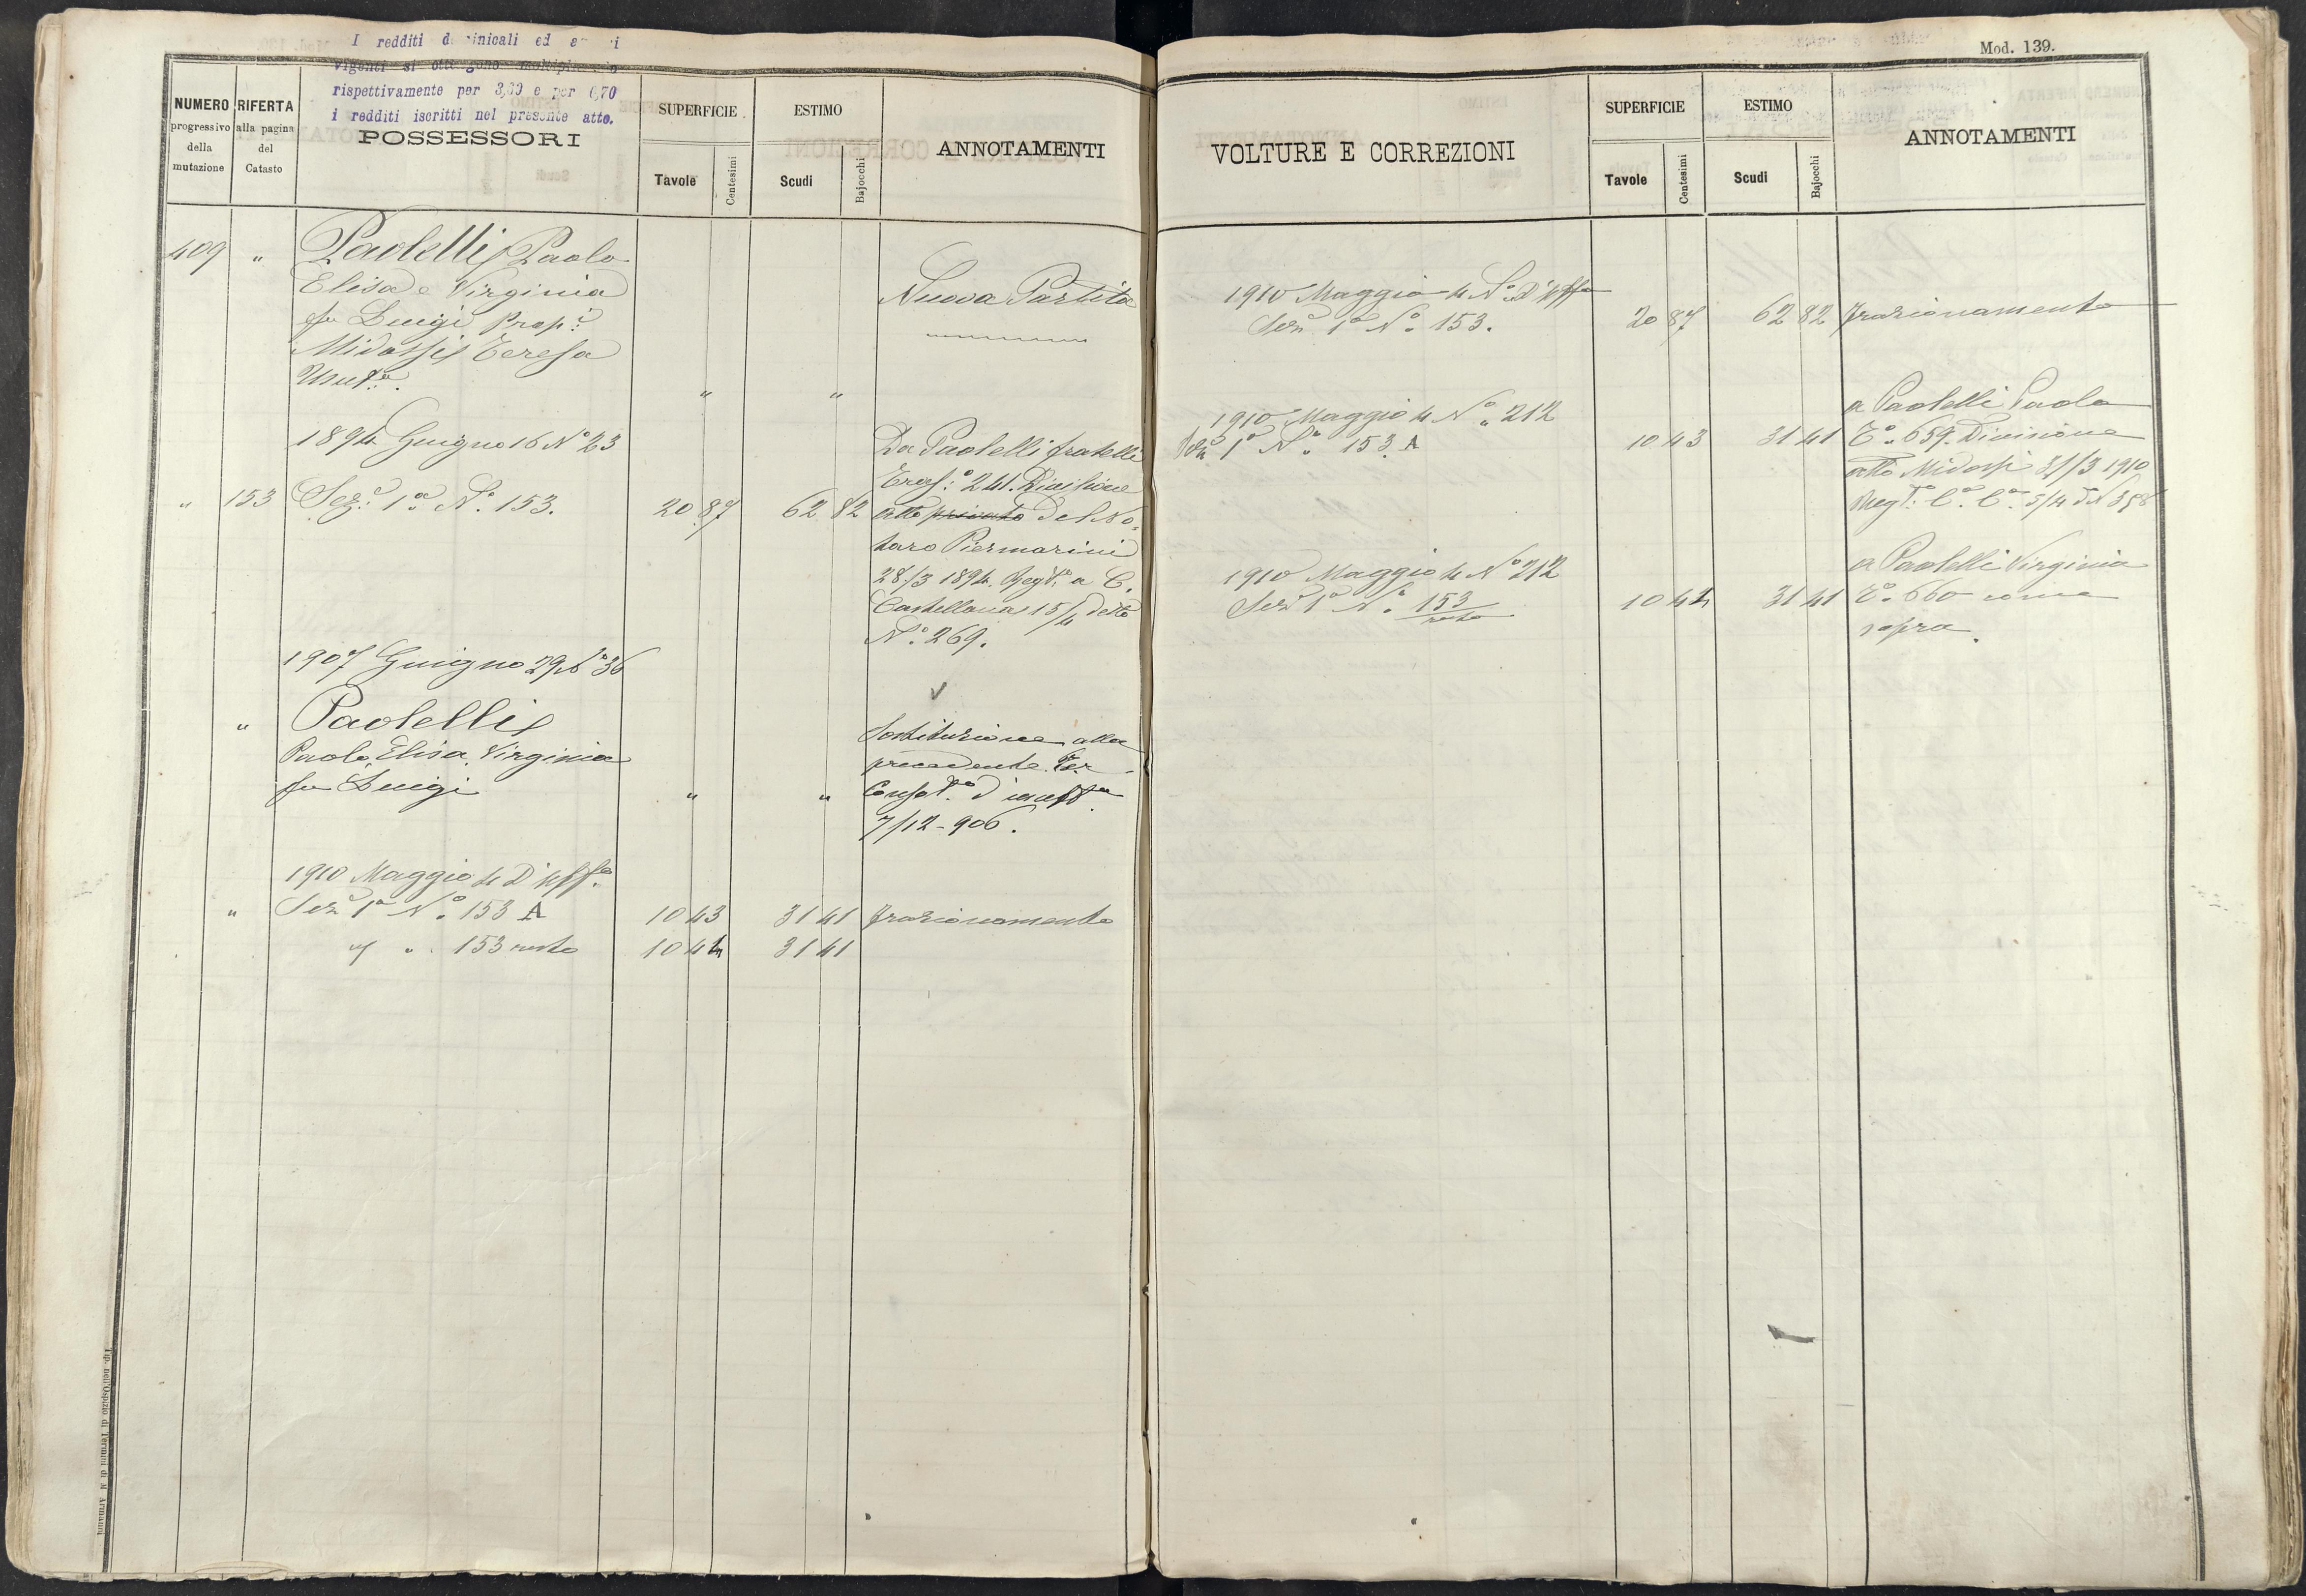 I redditi dominicali ed
vigenti si ottengono
rispettivamente per 3,30 e per 0,70
i redditi iscritti nel presente atto.
NUMERO progressivo della mutazione
RIFERTA alla pagina del Catasto
POSSESSORI
SUPERFICIE
Tavole
Centesimi
ESTIMO
Scudi
Bajocchi
ANNOTAMENTI
409 " Paolelli Paolo
Elisa e Virginia
fu Luigi Prop.i
Midossi Teresa
Usuf.a " "
Nuova Partita
1894 Giugno 16 N° 23
" 153 Sez.e 1a N° 153. 20 87 62 82
Da Paolelli fratelli
241. Divisione
atto privato del No=
taro Piermarini
28/3 1894. Regt.o a C.
Castellana 15/4 detto
N.° 269.
1907 Giugno 29 N° 36
" Paolelli
Paolo, Elisa, Virginia
fu Luigi " "
Sostituzione alla
precedente. Per
Consol.to d'usuf.to
7/12-906.
1910 Maggio 4 D'Uff.o
" Sez.e 1a N° 153 A 10 43 31 41 frazionamento
" " 153 resto 10 44 31 41
Tip. dell'Ospizio di Termini di N. Armanni
Mod. 139.
VOLTURE E CORREZIONI
SUPERFICIE
Tavole
Centesimi
ESTIMO
Scudi
Bajocchi
ANNOTAMENTI
1910 Maggio 4 N.° D'Uffo
Sez.e 1a N.° 153. 20 87 62 82 frazionamento
1910 Maggio 4 N.° 212
Sez.e 1a N.° 153 A 10 43 31 41
a Paolelli Paolo
T.° 659. Divisione
atto Midossi 31/3 1910
Regt.o C.a C.a 5/4 d.o N 358
1910 Maggio 4 N° 212
Sez.e 1a N.° 153 resto 10 44 31 41
a Paolelli Virginia
T.° 660 come
sopra.